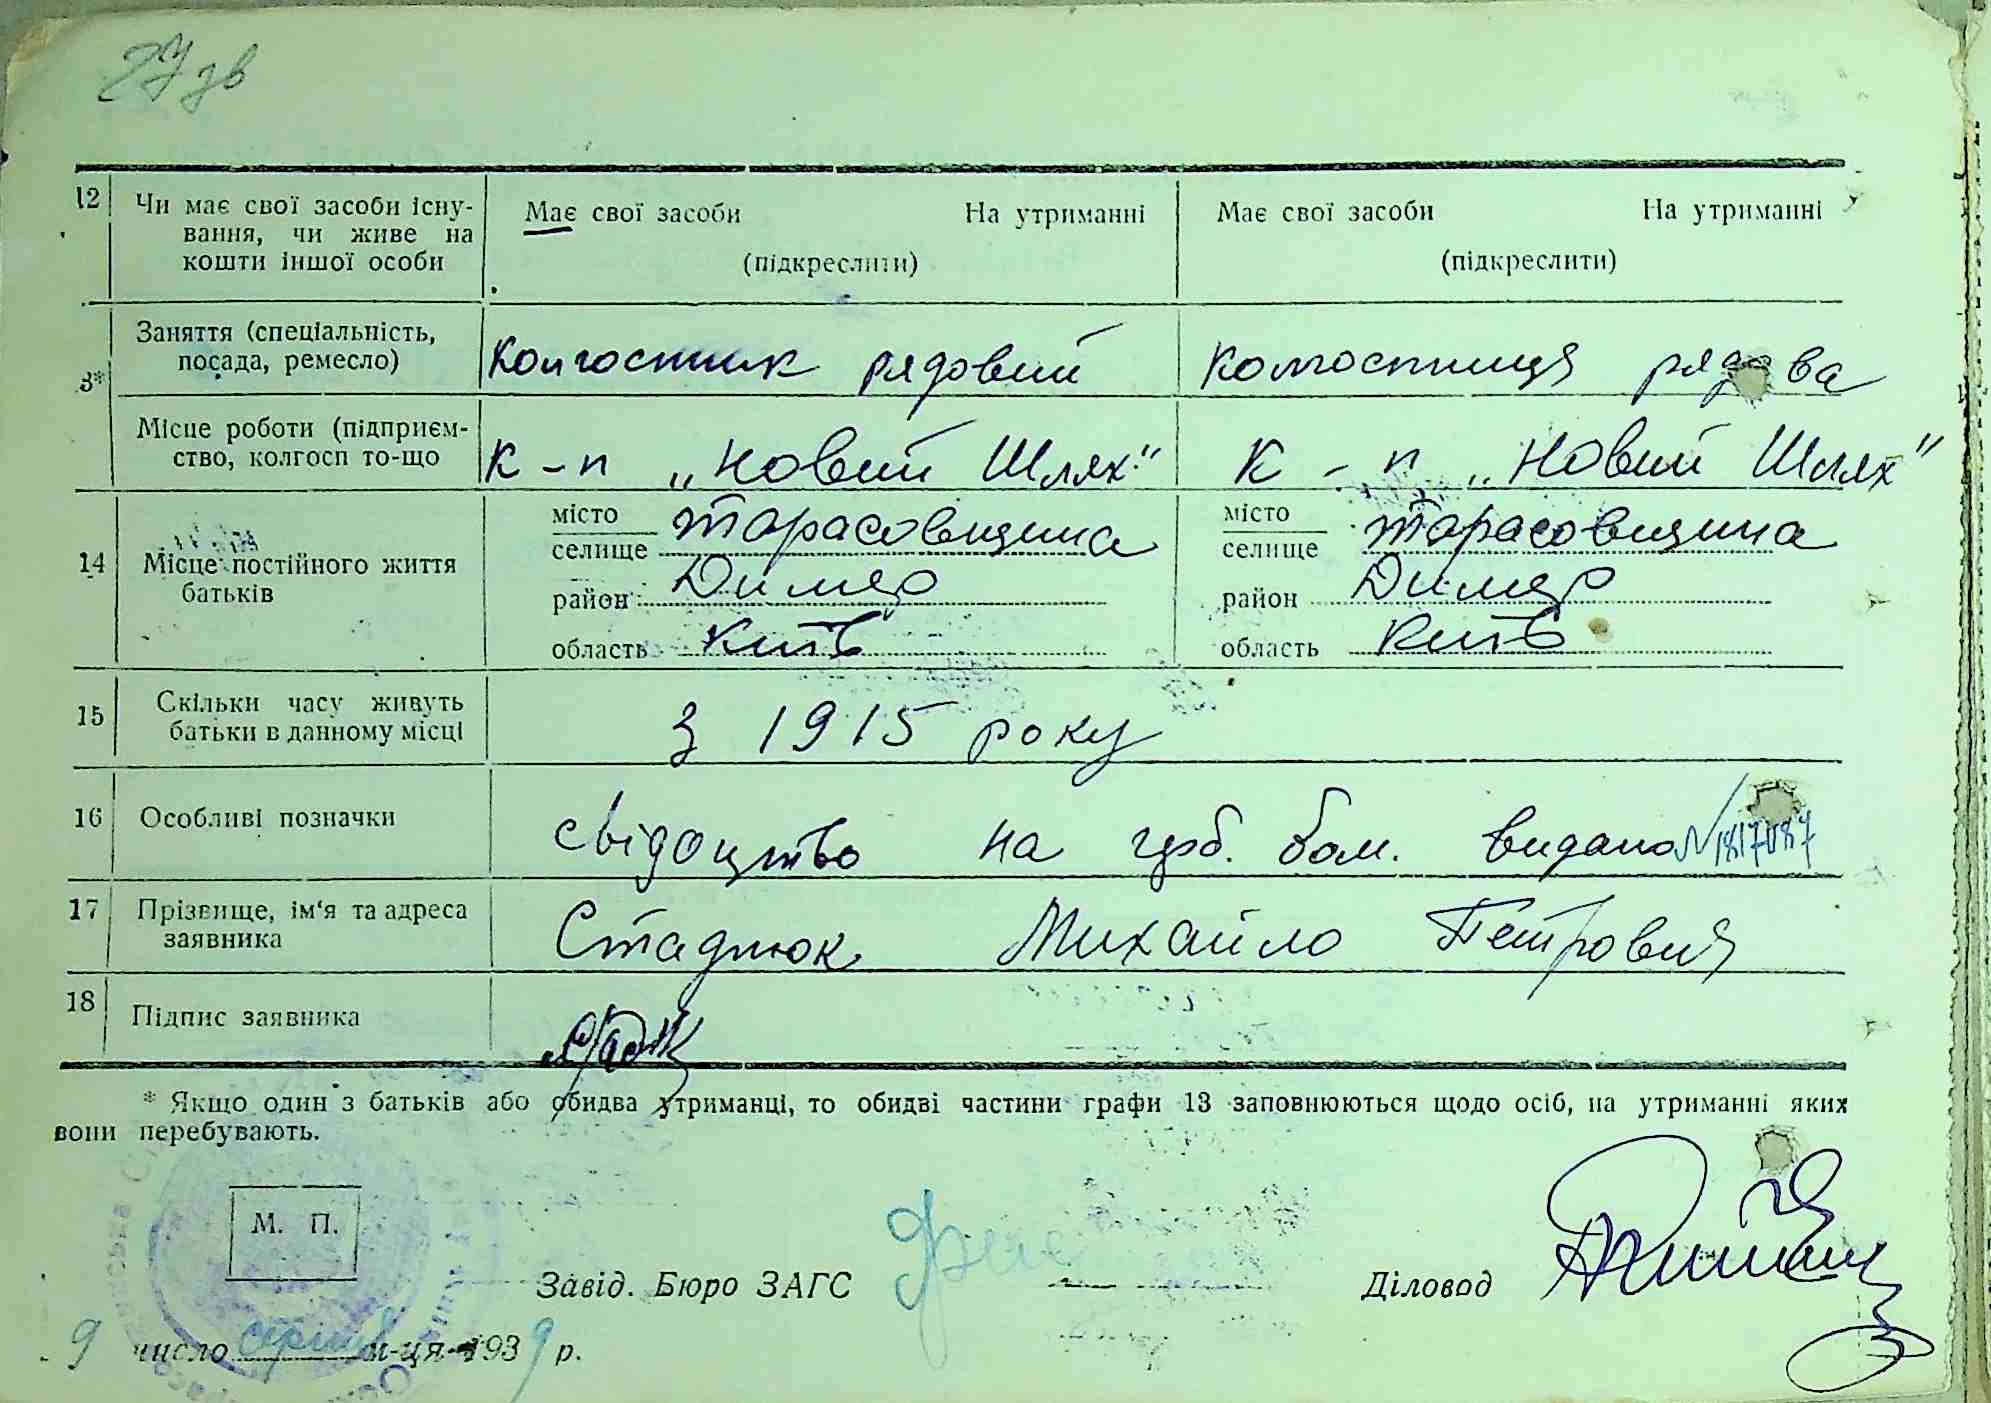 27 зв
12 Чи має свої засоби існу- Має свої засоби На утриманні Має свої засоби На утриманні
вання, чи живе на
кошти іншої особи (підкреслити) (підкреслити)
Заняття (спеціальність,
посада, ремесло) Колгоспник рядовий Колгоспниця рядова
3*
Місце роботи (підприєм-
ство, колгосп то-що К-п „Новий Шлях" К-п „Новий Шлях"
місто Тарасовщина місто Тарасовщина
селище селище
14 Місце постійного життя
батьків район Димер район Димер
область Київ область Київ
15 Скільки часу живуть
батьки в данному місці З 1915 року
16 Особливі позначки свідоцтво на видано N 1817087
17 Прізвище, ім'я та адреса
заявника Стаднюк Михайло Петрович
18 Підпис заявника
* Якщо один з батьків або обидва утриманці, то обидві частини графи 13 заповнюються щодо осіб, на утриманні яких
вони перебувають.
М. П.
Завід. Бюро ЗАГС Діловод
9 число серпня м-ця 1939 р.